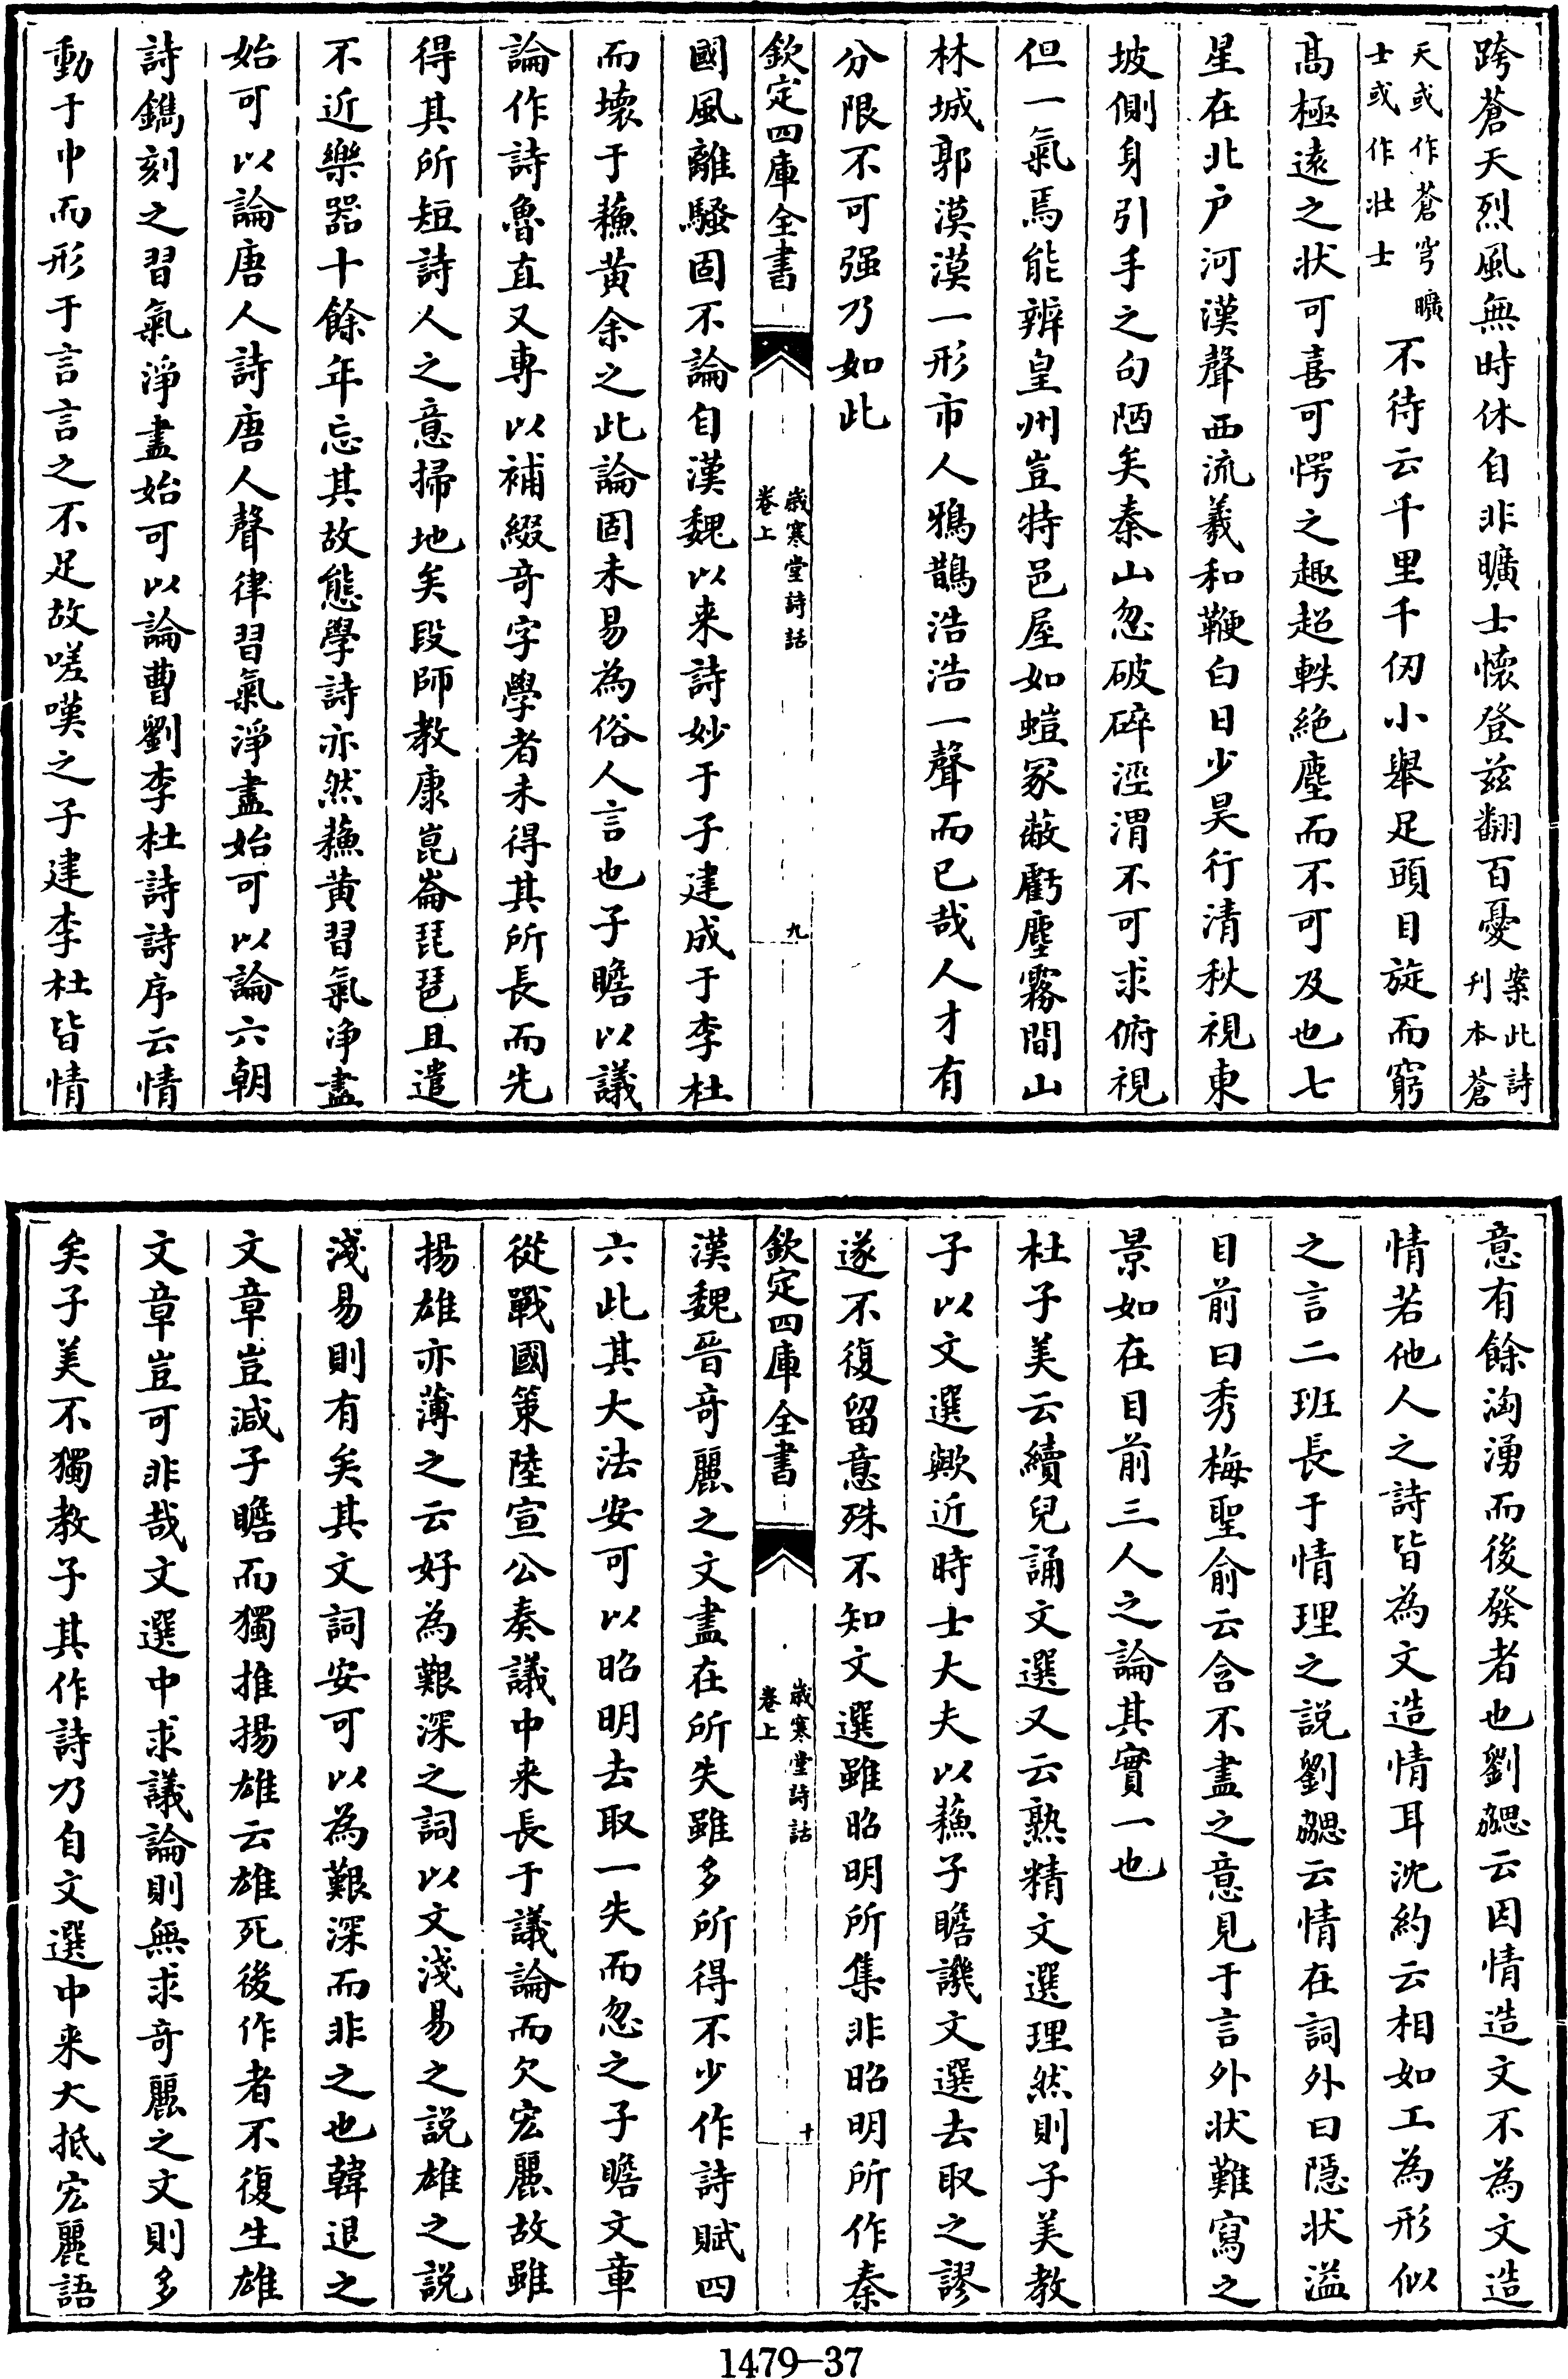 跨蒼天烈風無時休自非曠士懷登兹翻百憂案此詩刊本蒼
天或作蒼穹曠士或作壯士不待云千里千仞小舉足頭目旋而窮
髙極遠之狀可喜可愕之趣超軼絶塵而不可及也七
星在北户河漢聲西流羲和鞭白日少昊行清秋視東
坡側身引手之句陋矣秦山忽破碎涇渭不可求俯視
但一氣焉能辨皇州豈特邑屋如螘冢蔽虧塵霧間山
林城郭漠漠一形市人鴉鵲浩浩一聲而已哉人才有
分限不可强乃如此
欽定四庫全書
歲寒堂詩話
卷上
九
國風離騷固不論自漢魏以来詩妙于子建成于李杜
而壊于蘓黄余之此論固未易為俗人言也子瞻以議
論作詩魯直又専以補綴竒字學者未得其所長而先
得其所短詩人之意掃地矣段師教康崑崙琵琶且遣
不近樂器十餘年忘其故態學詩亦然蘓黄習氣净盡
始可以論唐人詩唐人聲律習氣淨盡始可以論六朝
詩鐫刻之習氣淨盡始可以論曹劉李杜詩詩序云情
動于中而形于言言之不足故嗟嘆之子建李杜皆情
意有餘洶湧而後發者也劉勰云因情造文不為文造
情若他人之詩皆為文造情耳沈約云相如工為形似
之言二班長于情理之説劉勰云情在詞外曰隠狀溢
目前曰秀梅聖俞云含不盡之意見于言外狀難寫之
景如在目前三人之論其實一也
杜子美云續兒誦文選又云熟精文選理然則子美教
子以文選歟近時士大夫以蘓子瞻譏文選去取之謬
遂不復留意殊不知文選雖昭明所集非昭明所作秦
欽定四庫全書
歲寒堂詩話
卷上
十
漢魏晉竒麗之文盡在所失雖多所得不少作詩賦四
六此其大法安可以昭明去取一失而忽之子瞻文章
從戰國策陸宣公奏議中来長于議論而欠宏麗故雖
揚雄亦薄之云好為艱深之詞以文淺易之説雄之説
淺易則有矣其文詞安可以為艱深而非之也韓退之
文章豈減子瞻而獨推揚雄云雄死後作者不復生雄
文章豈可非哉文選中求議論則無求竒麗之文則多
矣子美不獨教子其作詩乃自文選中来大抵宏麗語
1479-37